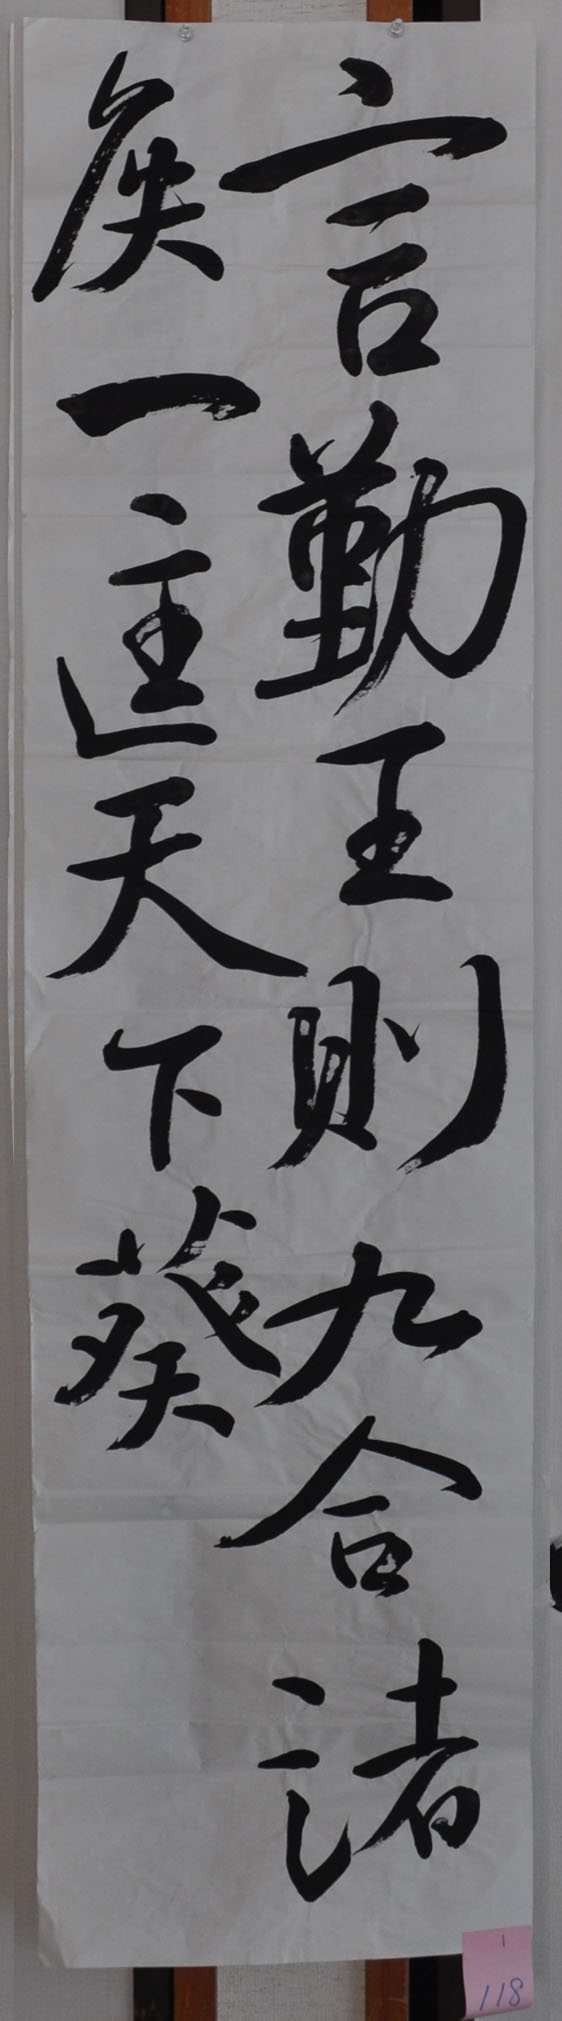 言勤王則九合諸
侯一匡天下葵
1
118